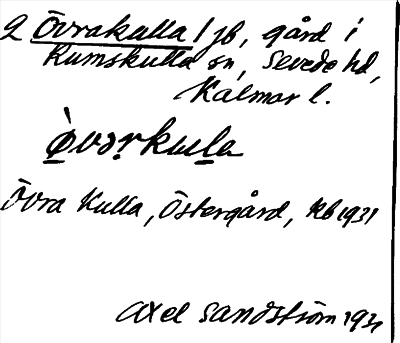 2 Övrakulla / jb, gård i
Rumskulla sn, Sevede hd,
Kalmar l.
Övra Kulla, Östergård, kb 1931
Axel Sandström 1931